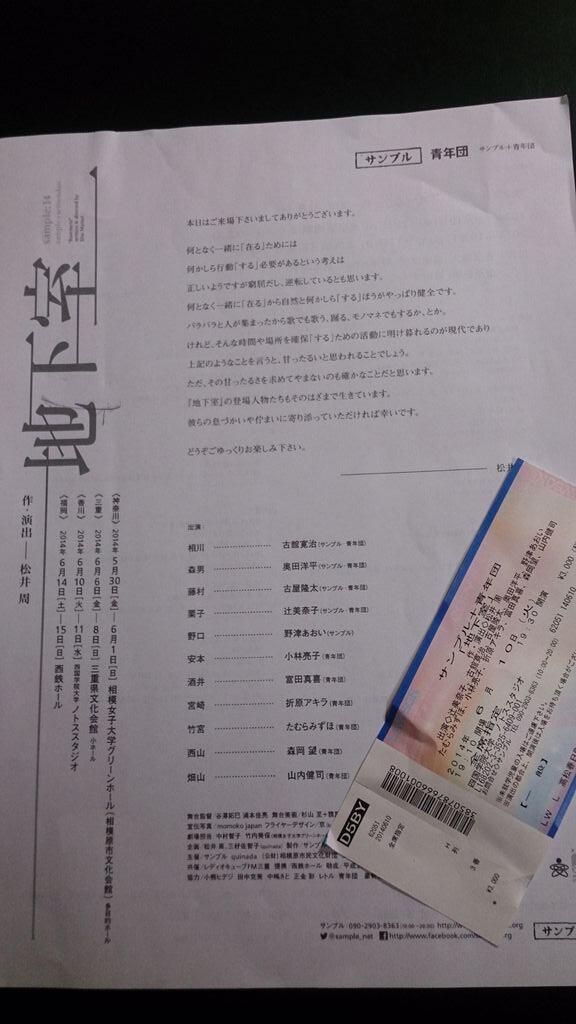 サンプル 青年団 サンプル＋青年団
sample:14
地下室
作・演出──松井 周
〈神奈川〉 2014年 5月30日[金]―6月1日[日] 相模女子大学グリーンホール(相模原市文化会館) 多目的ホール
〈三重〉 2014年 6月6日[金]―8日[日] 三重県文化会館 小ホール
〈香川〉 2014年 6月10日[火]―11日[水] 四国学院大学 ノトススタジオ
〈福岡〉 2014年 6月14日[土]―15日[日] 西鉄ホール
本日はご来場下さいましてありがとうございます。
何となく一緒に「在る」ためには
何かしら行動「する」必要があるという考えは
正しいようですが窮屈だし、逆転しているとも思います。
何となく一緒に「在る」から自然と何かしら「する」ほうがやっぱり健全です。
バラバラと人が集まったから歌でも歌う、踊る、モノマネでもするか、とか。
けれど、そんな時間や場所を確保「する」ための活動に明け暮れるのが現代であり
上記のようなことを言うと、甘ったるいと思われることでしょう。
ただ、その甘ったるさを求めてやまないのも確かなことだと思います。
『地下室』の登場人物たちもそのはざまで生きています。
彼らの息づかいや佇まいに寄り添っていただければ幸いです。
どうぞごゆっくりお楽しみ下さい。
松井
出演:
相川 古舘寛治(サンプル・青年団)
森男 奥田洋平(サンプル・青年団)
藤村 古屋隆太(サンプル・青年団)
栗子 辻美奈子(サンプル・青年団)
野口 野津あおい(サンプル)
安本 小林亮子(青年団)
酒井 富田真喜(青年団)
宮崎 折原アキラ(青年団)
竹宮 たむらみずほ(青年団)
西山 森岡 望(青年団)
畑山 山内健司(青年団)
舞台監督/谷澤拓巳 浦本佳亮 舞台美術/杉山 至
宣伝写真/momoko japan フライヤーデザイン/京
劇場担当/中村智子 竹内美保
企画/松井 周、三好佐智子(quinada) 製作/サンプ
主催/サンプル quinada (公財)相模原市民文化財団
共催/レディオキューブFM三重 提携/西鉄ホール 助成/平成
協力/小熊ヒデジ 田中克美 中嶋さと 正金 彩 レトル 青年団
サンプル/090-2903-8363(10:00~20:00) http://w
@sample_net http://www.facebook.com/
サンプ
サンプル+青年団
『地下室』
作・演出◇松井 周
出演◇辻美奈子 古屋隆太 奥田洋平 野津あおい
たむらみずほ、小林亮子、折原アキラ、富田真喜、森岡望、山内健司
2014年 6月10日(火)
19:10 開場 19:30 開演
四国学院大学ノトススタジオ
全席指定 ¥3,000
D5BY
62051
20140610
全席指定
3番
¥3,000